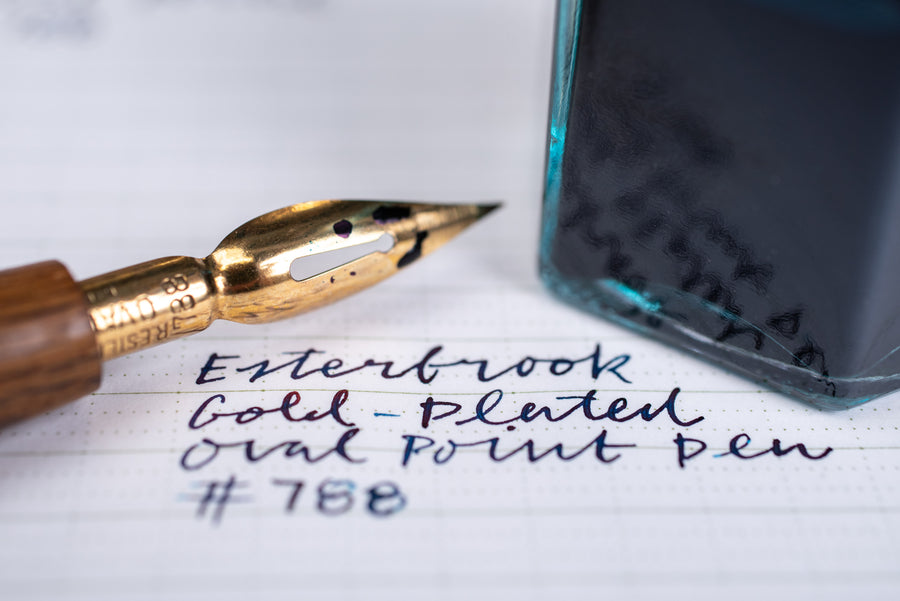 88
OVA
Esterbrook
Gold - Plated
Oval Point Pen
# 788